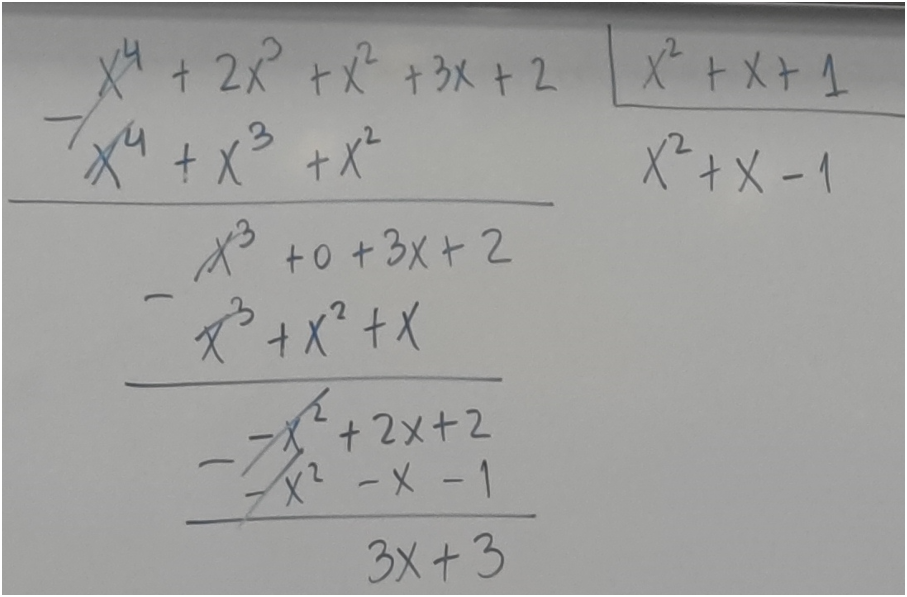 x⁴ + 2x³ + x² + 3x + 2 | x² + x + 1
− x⁴ + x³ + x² x² + x − 1
x³ + 0 + 3x + 2
− x³ + x² + x
−x² + 2x + 2
− −x² − x − 1
3x + 3